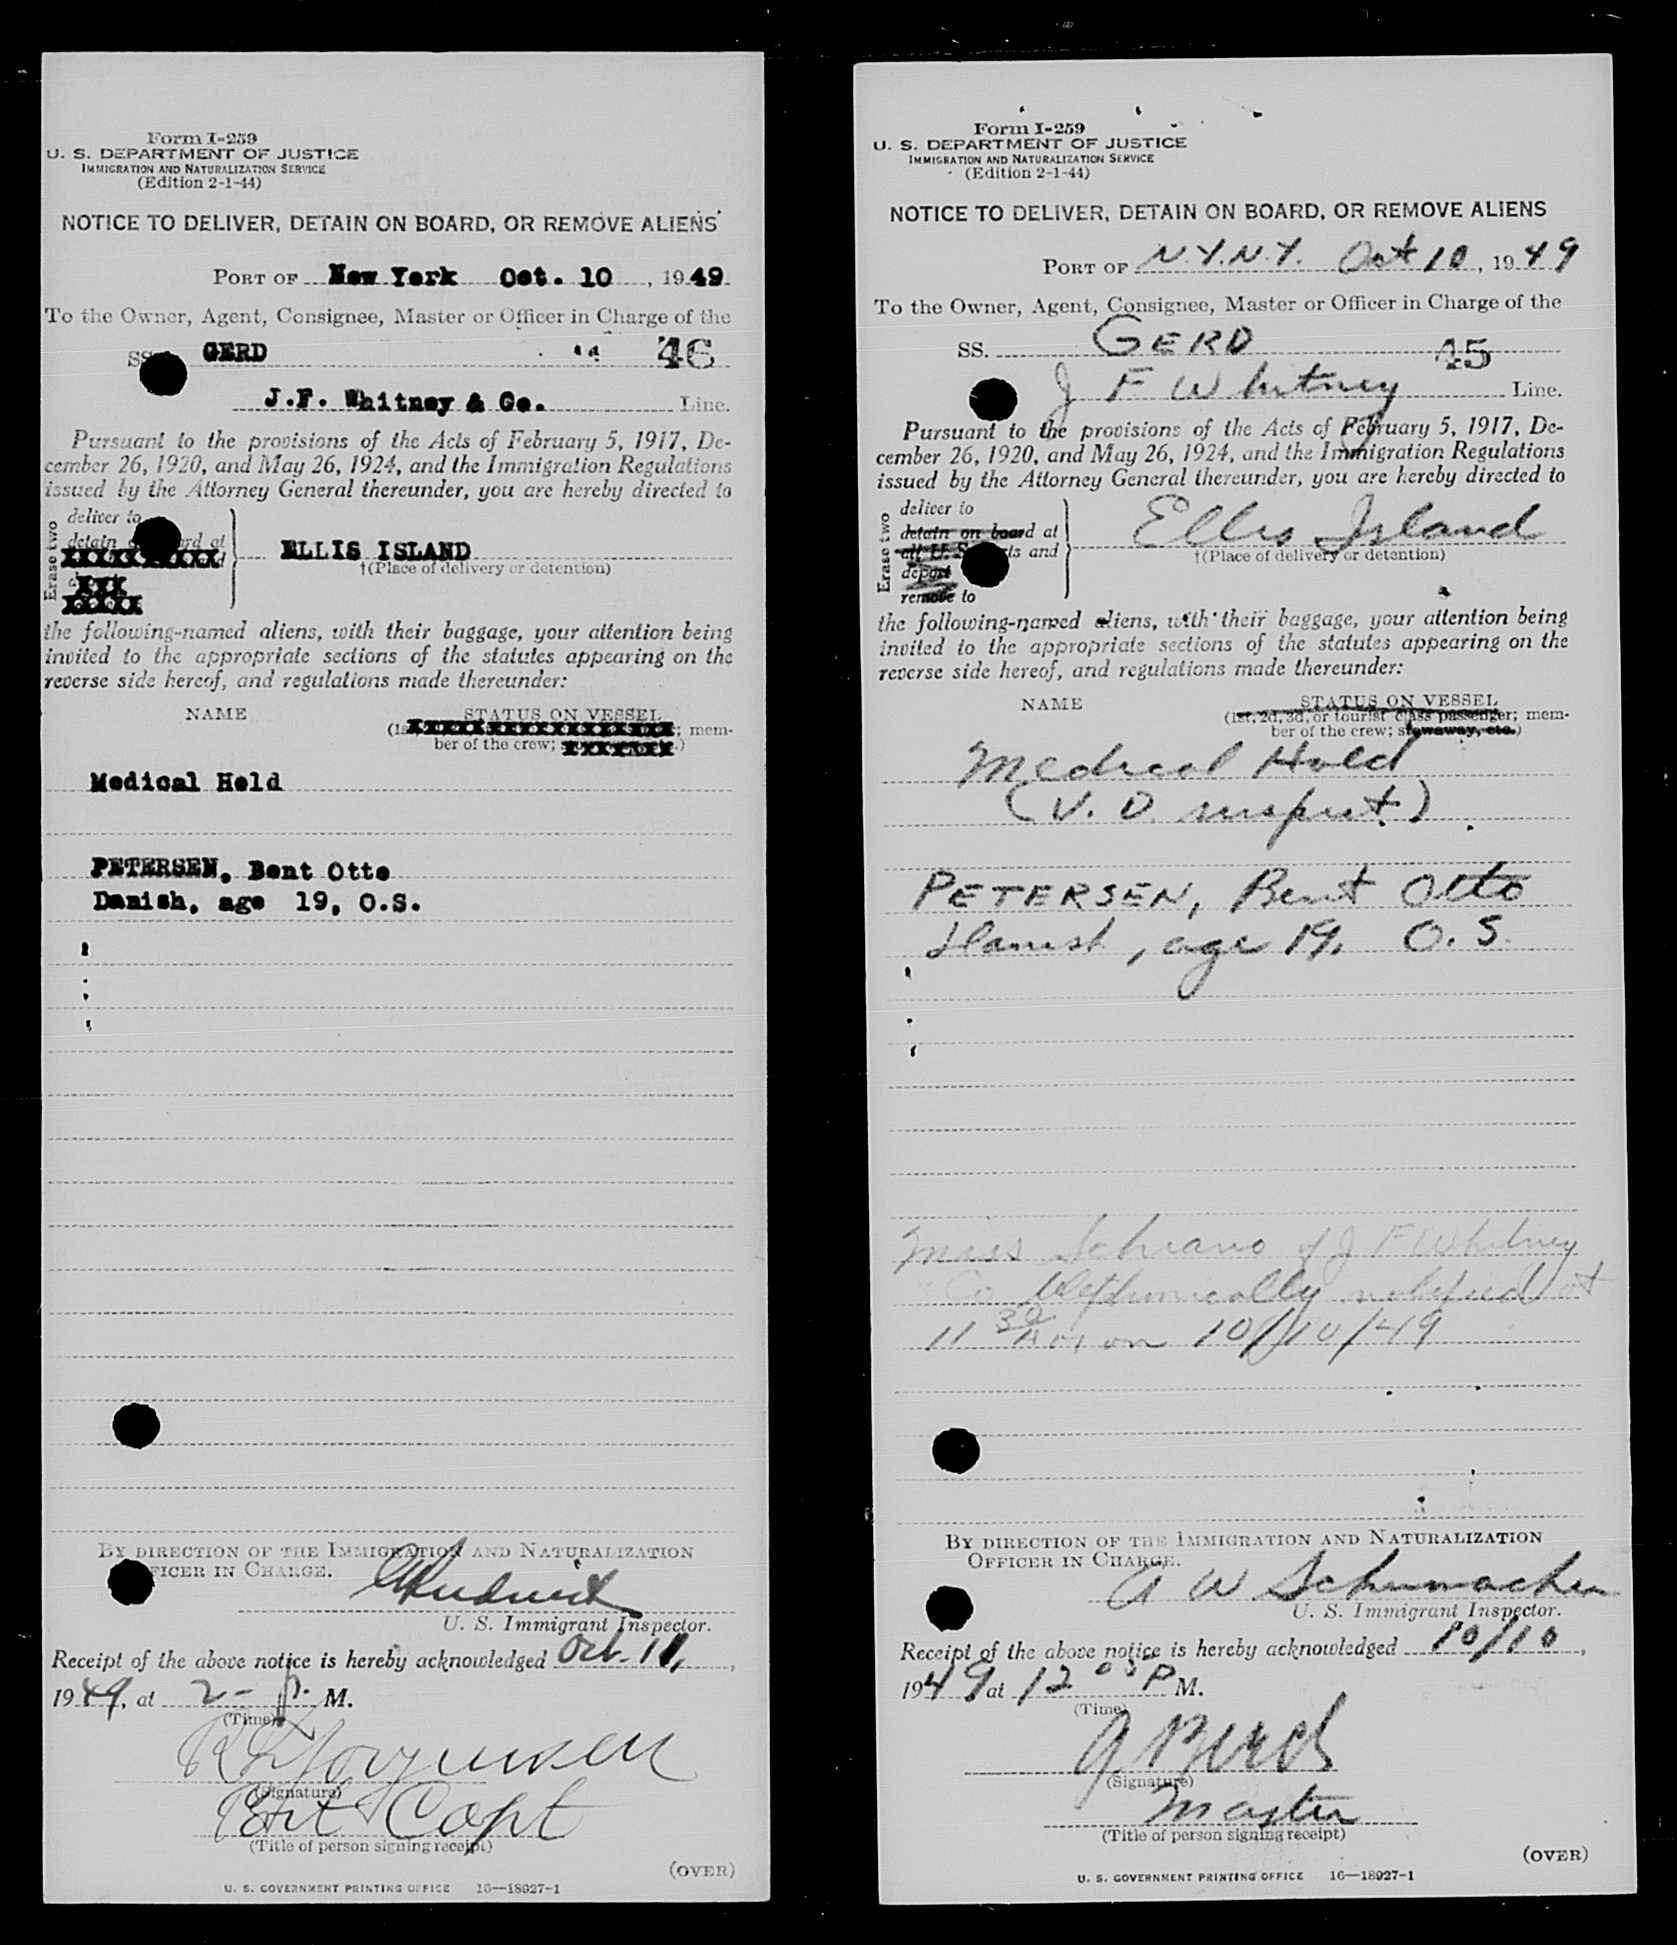 Form I-259
U. S. DEPARTMENT OF JUSTICE
IMMIGRATION AND NATURALIZATION SERVICE
(Edition 2-1-44)
NOTICE TO DELIVER, DETAIN ON BOARD, OR REMOVE ALIENS
PORT OF New York Oct. 10, 1949
To the Owner, Agent, Consignee, Master or Officer in Charge of the
SS. GERD 46
J.F. Whitney & Co. Line.
Pursuant to the provisions of the Acts of February 5, 1917, De-
cember 26, 1920, and May 26, 1924, and the Immigration Regulations
issued by the Attorney General thereunder, you are hereby directed to
Erase two
deliver to
detain rd at
xxxxxxxxxx
xxx
xxxxx
ELLIS ISLAND
†(Place of delivery or detention)
the following-named aliens, with their baggage, your attention being
invited to the appropriate sections of the statutes appearing on the
reverse side hereof, and regulations made thereunder:
NAME STATUS ON VESSEL
(1s xxxxxxxxxxxxxxxxxxx; mem-
ber of the crew; xxxxxxxx.)
Medical Held
PETERSEN, Bent Otto
Danish, age 19, O.S.
BY DIRECTION OF THE IMMIGRATION AND NATURALIZATION
FICER IN CHARGE.
U. S. Immigrant Inspector.
Receipt of the above notice is hereby acknowledged Oct. 11,
1949, at 2- p. M.
(Time)
(Signature)
Port Capt
(Title of person signing receipt)
(OVER)
U. S. GOVERNMENT PRINTING OFFICE 16—18927-1
Form I-259
U. S. DEPARTMENT OF JUSTICE
IMMIGRATION AND NATURALIZATION SERVICE
(Edition 2-1-44)
NOTICE TO DELIVER, DETAIN ON BOARD, OR REMOVE ALIENS
PORT OF N.Y.N.Y. Oct 10, 1949
To the Owner, Agent, Consignee, Master or Officer in Charge of the
SS. GERD 45
J F Whitney Line.
Pursuant to the provisions of the Acts of February 5, 1917, De-
cember 26, 1920, and May 26, 1924, and the Immigration Regulations
issued by the Attorney General thereunder, you are hereby directed to
Erase two
deliver to
detain on board at
all U. S. ts and
deport
remove to
Ellis Island
†(Place of delivery or detention)
the following-named aliens, with their baggage, your attention being
invited to the appropriate sections of the statutes appearing on the
reverse side hereof, and regulations made thereunder:
NAME STATUS ON VESSEL
(1st, 2d, 3d, or tourist class passenger; mem-
ber of the crew; stowaway, etc.)
Medical Hold
(V. D. inspect.)
PETERSEN, Bent Otto
Danish, age 19, O. S.
Miss Schiano of J F Whitney
Co telephonically notified at
11 30 AM on 10/10/49
BY DIRECTION OF THE IMMIGRATION AND NATURALIZATION
OFFICER IN CHARGE.
A W Schumacher
U. S. Immigrant Inspector.
Receipt of the above notice is hereby acknowledged 10/10,
1949 at 12 05 P M.
(Time)
(Signature)
Master
(Title of person signing receipt)
(OVER)
U. S. GOVERNMENT PRINTING OFFICE 16—18927-1